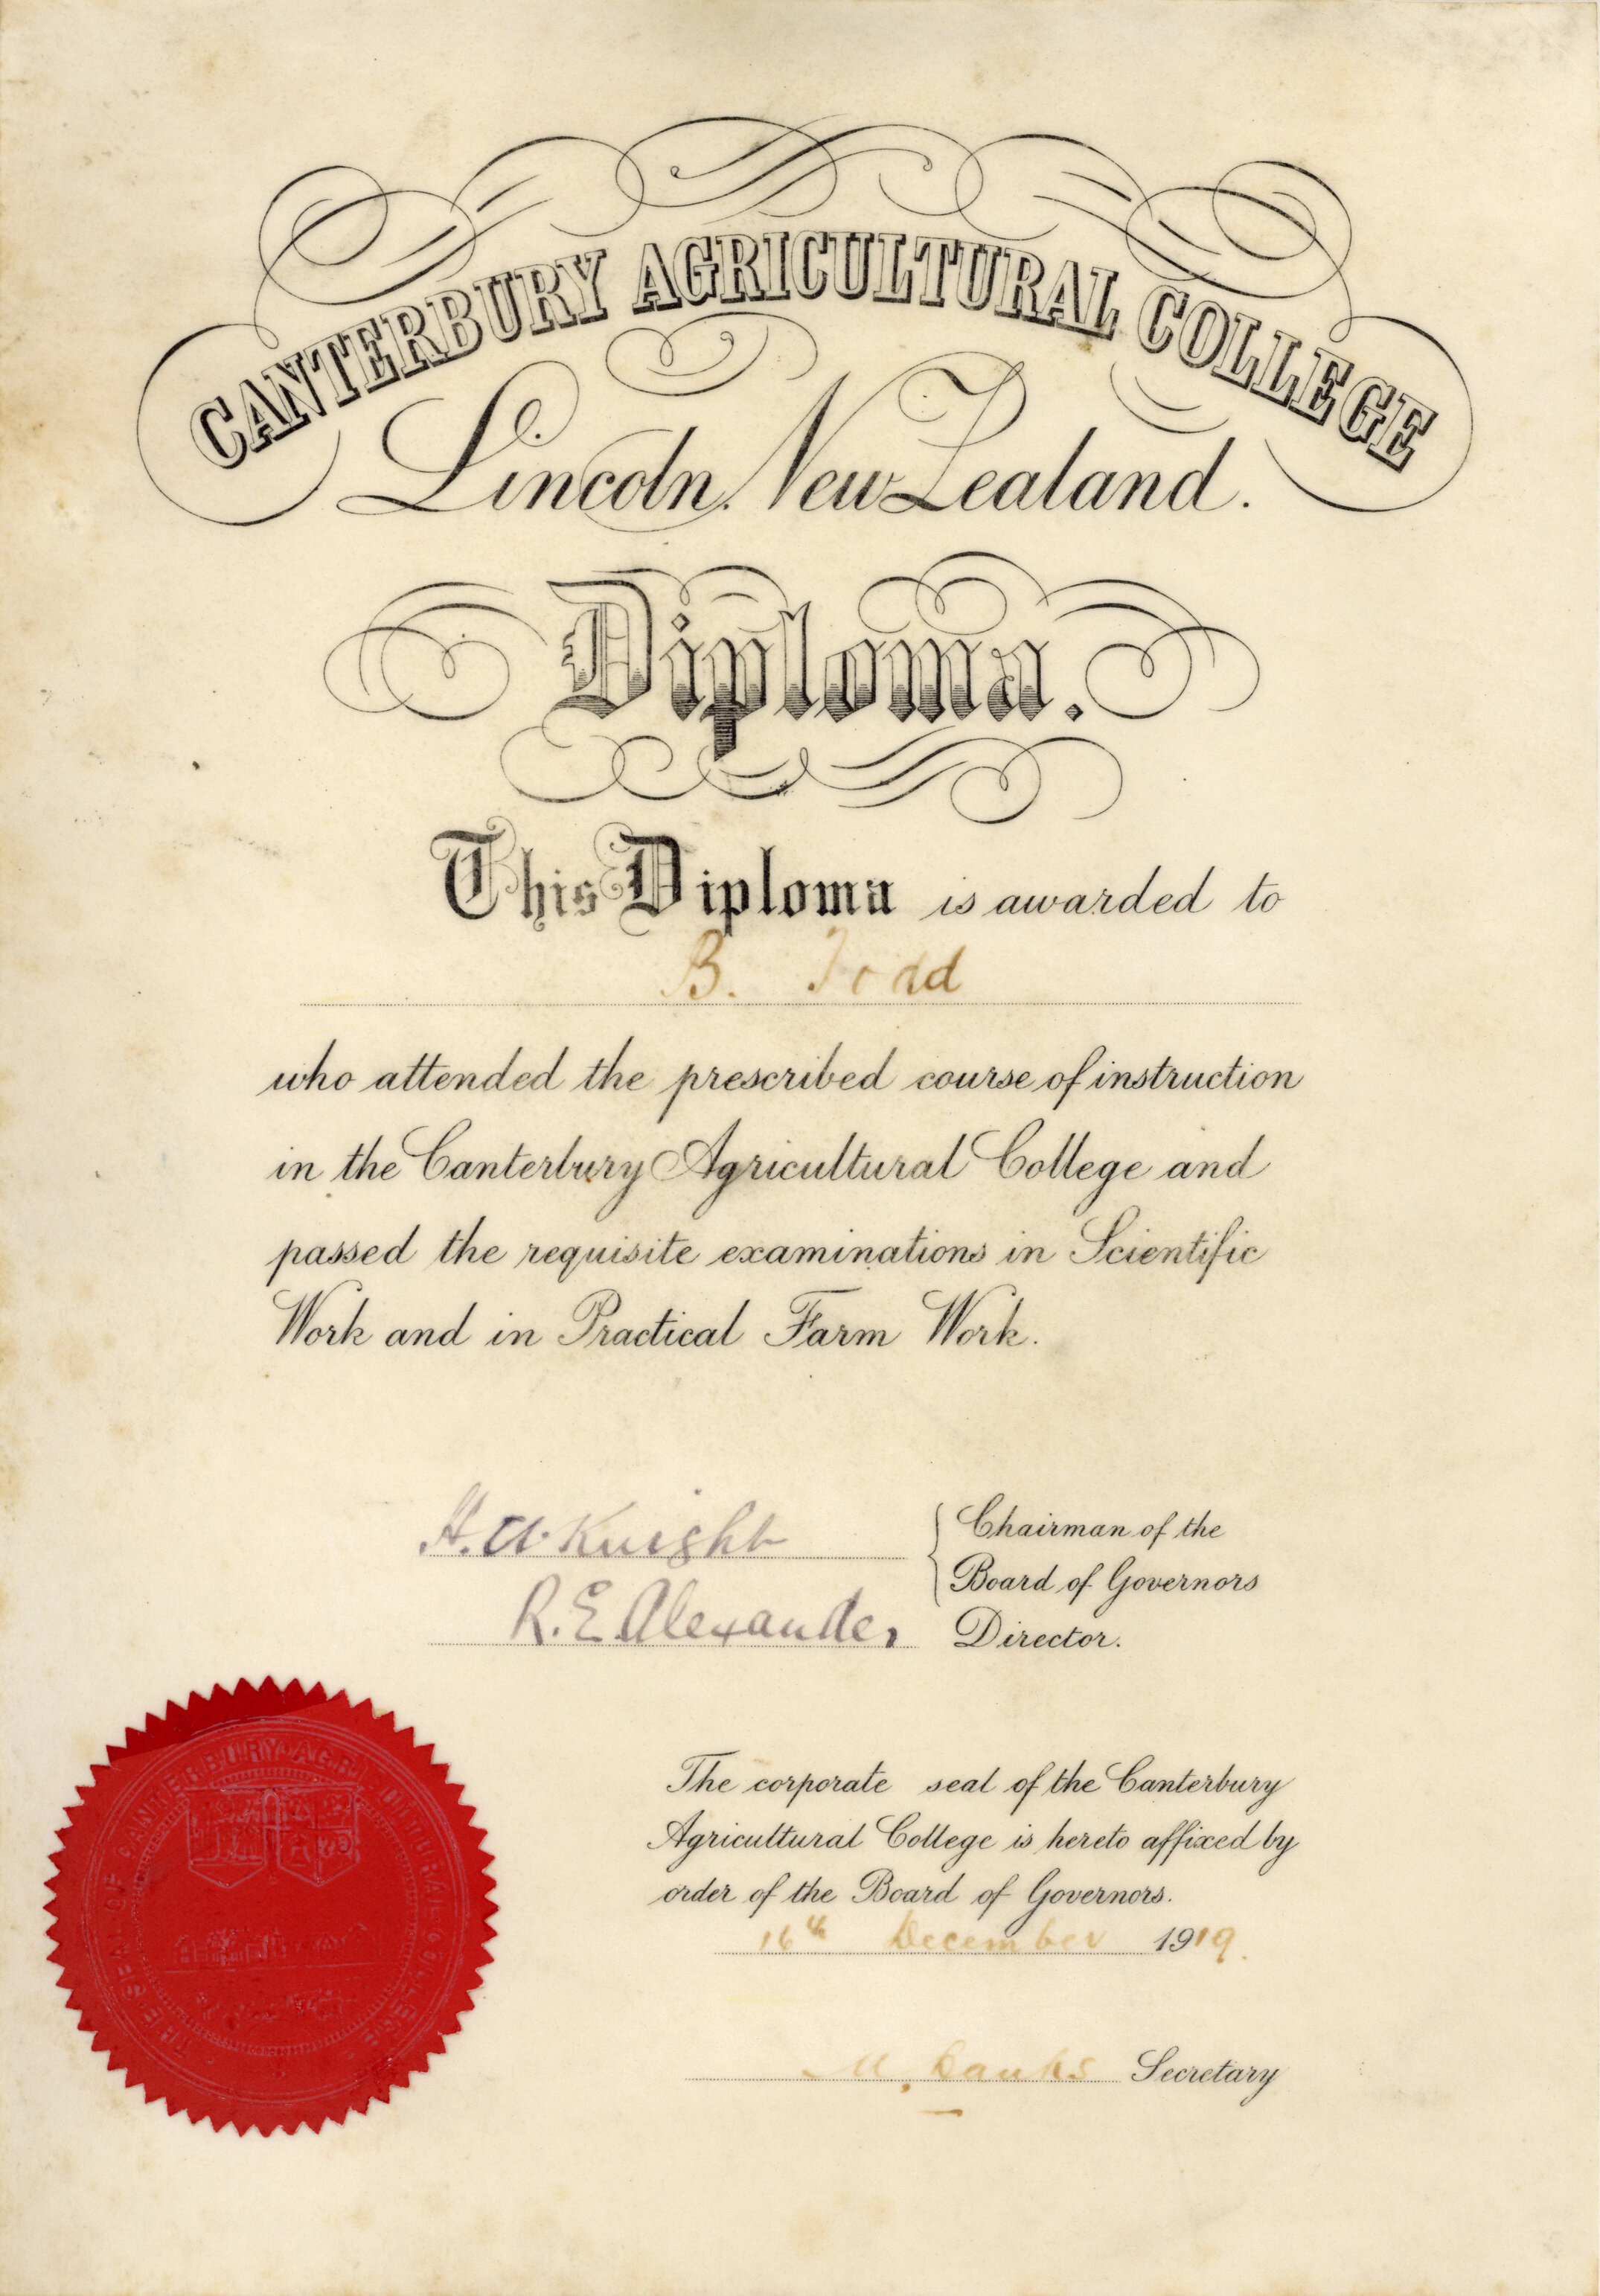 CANTERBURY AGRICULTURAL COLLEGE
Lincoln. New Zealand.
Diploma.
This Diploma is awarded to
B. Todd
who attended the prescribed course of instruction
in the Canterbury Agricultural College and
passed the requisite examinations in Scientific
Work and in Practical Farm Work.
H. A. Knight
Chairman of the
Board of Governors
R. E. Alexander Director.
THE SEAL OF CANTERBURY AGRICULTURAL COLLEGE
The corporate seal of the Canterbury
Agricultural College is hereto affixed by
order of the Board of Governors.
16th December 1919.
M. Banks Secretary